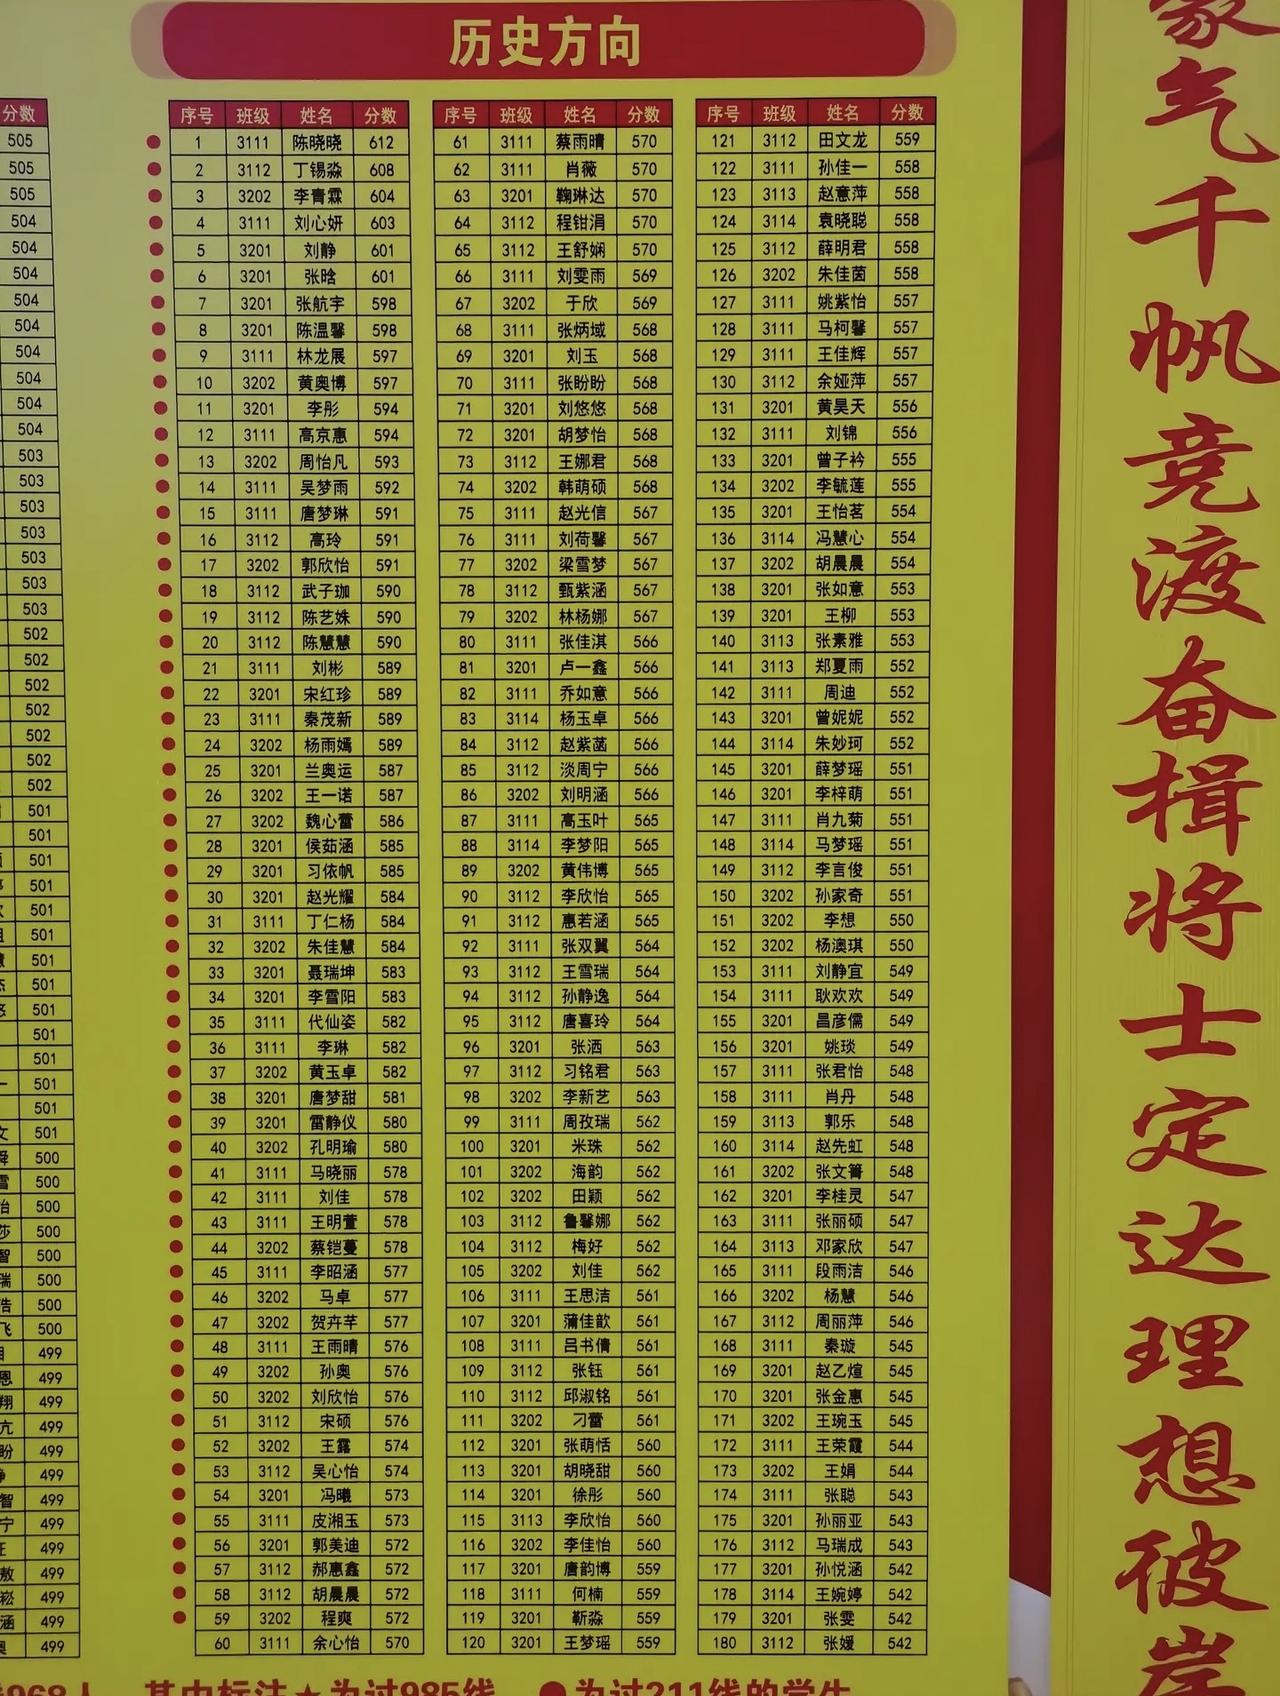 历史方向
分数
505
505
505
504
504
504
504
504
504
504
504
504
503
503
503
503
503
503
503
502
502
502
502
502
502
502
501
501
501
501
501
501
501
501
501
501
501
501
501
501
500
500
500
500
500
500
500
500
499
499
499
499
499
499
499
499
499
499
499
499
499
序号 班级 姓名 分数
1 3111 陈晓晓 612
2 3112 丁锡淼 608
3 3202 李青霖 604
4 3111 刘心妍 603
5 3201 刘静 601
6 3201 张晗 601
7 3201 张航宇 598
8 3201 陈温馨 598
9 3111 林龙展 597
10 3202 黄奥博 597
11 3201 李彤 594
12 3111 高京惠 594
13 3202 周怡凡 593
14 3111 吴梦雨 592
15 3111 唐梦琳 591
16 3112 高玲 591
17 3202 郭欣怡 591
18 3112 武子珈 590
19 3112 陈艺姝 590
20 3112 陈慧慧 590
21 3111 刘彬 589
22 3201 宋红珍 589
23 3111 秦茂新 589
24 3202 杨雨嫣 589
25 3201 兰奥运 587
26 3202 王一诺 587
27 3202 魏心蕾 586
28 3201 侯茹涵 585
29 3201 习依帆 585
30 3201 赵光耀 584
31 3111 丁仁杨 584
32 3202 朱佳慧 584
33 3201 聂瑞坤 583
34 3201 李雪阳 583
35 3111 代仙姿 582
36 3111 李琳 582
37 3202 黄玉卓 582
38 3201 唐梦甜 581
39 3201 雷静仪 580
40 3202 孔明瑜 580
41 3111 马晓丽 578
42 3111 刘佳 578
43 3111 王明萱 578
44 3202 蔡铠蔓 578
45 3111 李昭涵 577
46 3202 马卓 577
47 3202 贺卉芊 577
48 3111 王雨晴 576
49 3202 孙奥 576
50 3202 刘欣怡 576
51 3112 宋硕 576
52 3202 王露 574
53 3112 吴心怡 574
54 3201 冯曦 573
55 3111 皮湘玉 573
56 3201 郭美迪 572
57 3112 郝惠鑫 572
58 3112 胡晨晨 572
59 3202 程爽 572
60 3111 余心怡 570
序号 班级 姓名 分数
61 3111 蔡雨晴 570
62 3111 肖薇 570
63 3201 鞠琳达 570
64 3112 程钳涓 570
65 3112 王舒娴 570
66 3111 刘雯雨 569
67 3202 于欣 569
68 3111 张炳域 568
69 3201 刘玉 568
70 3111 张盼盼 568
71 3201 刘悠悠 568
72 3201 胡梦怡 568
73 3112 王娜君 568
74 3202 韩萌硕 568
75 3111 赵光信 567
76 3111 刘荷馨 567
77 3202 梁雪梦 567
78 3112 甄紫涵 567
79 3202 林杨娜 567
80 3111 张佳淇 566
81 3201 卢一鑫 566
82 3111 乔如意 566
83 3114 杨玉卓 566
84 3112 赵紫菡 566
85 3112 淡周宁 566
86 3202 刘明涵 566
87 3111 高玉叶 565
88 3114 李梦阳 565
89 3202 黄伟博 565
90 3112 李欣怡 565
91 3112 惠若涵 565
92 3111 张双翼 564
93 3112 王雪瑞 564
94 3112 孙静逸 564
95 3112 唐喜玲 564
96 3201 张洒 563
97 3112 习铭君 563
98 3202 李新艺 563
99 3111 周孜瑞 562
100 3201 米珠 562
101 3202 海韵 562
102 3202 田颖 562
103 3112 鲁馨娜 562
104 3112 梅好 562
105 3202 刘佳 562
106 3111 王思洁 561
107 3201 蒲佳歆 561
108 3111 吕书倩 561
109 3112 张钰 561
110 3112 邱淑铭 561
111 3202 刁蕾 561
112 3201 张萌恬 560
113 3201 胡晓甜 560
114 3201 徐彤 560
115 3113 李欣怡 560
116 3202 李佳怡 560
117 3201 唐韵博 559
118 3111 何楠 559
119 3201 靳淼 559
120 3201 王梦瑶 559
序号 班级 姓名 分数
121 3112 田文龙 559
122 3111 孙佳一 558
123 3113 赵意萍 558
124 3114 袁晓聪 558
125 3112 薛明君 558
126 3202 朱佳茵 558
127 3111 姚紫怡 557
128 3111 马柯馨 557
129 3111 王佳辉 557
130 3112 余娅萍 557
131 3201 黄昊天 556
132 3111 刘锦 556
133 3201 曾子衿 555
134 3202 李毓莲 555
135 3201 王怡茗 554
136 3114 冯慧心 554
137 3202 胡晨晨 554
138 3201 张如意 553
139 3201 王柳 553
140 3113 张素雅 553
141 3113 郑夏雨 552
142 3111 周迪 552
143 3201 曾妮妮 552
144 3114 朱妙珂 552
145 3201 薛梦瑶 551
146 3201 李梓萌 551
147 3111 肖九菊 551
148 3114 马梦瑶 551
149 3112 李言俊 551
150 3202 孙家奇 551
151 3202 李想 550
152 3202 杨澳琪 550
153 3111 刘静宜 549
154 3111 耿欢欢 549
155 3201 昌彦儒 549
156 3201 姚琰 549
157 3111 张君怡 548
158 3111 肖丹 548
159 3113 郭乐 548
160 3114 赵先虹 548
161 3202 张文箐 548
162 3201 李桂灵 547
163 3111 张丽硕 547
164 3113 邓家欣 547
165 3111 段雨洁 546
166 3202 杨慧 546
167 3112 周丽萍 546
168 3111 秦璇 545
169 3201 赵乙煊 545
170 3201 张金惠 545
171 3202 王琬玉 545
172 3111 王荣霞 544
173 3202 王娟 544
174 3111 张聪 543
175 3201 孙丽亚 543
176 3112 马瑞成 543
177 3201 孙悦涵 542
178 3114 王婉婷 542
179 3201 张雯 542
180 3112 张媛 542
968人 其中标注★为过985线 ●为过211线的学生
豪气千帆竞渡奋楫将士定达理想彼岸